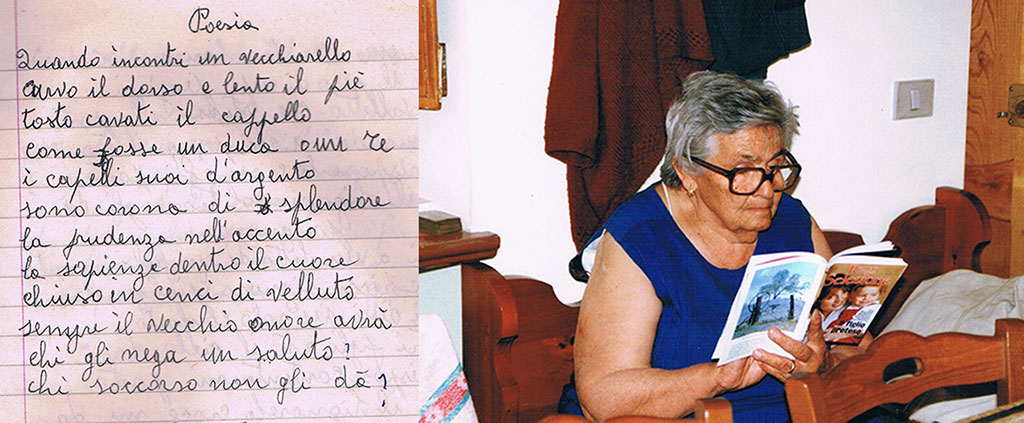 Poesia
Quando incontri un vecchiarello
curvo il dorso e lento il piè
tosto cavati il cappello
come fosse un duca o un re
i capelli suoi d'argento
sono corona di splendore
la prudenza nell'accento
la sapienza dentro il cuore
chiuso in cenci di velluto
sempre il vecchio onore avrà
chi gli nega un saluto?
chi soccorso non gli dà?
figlio